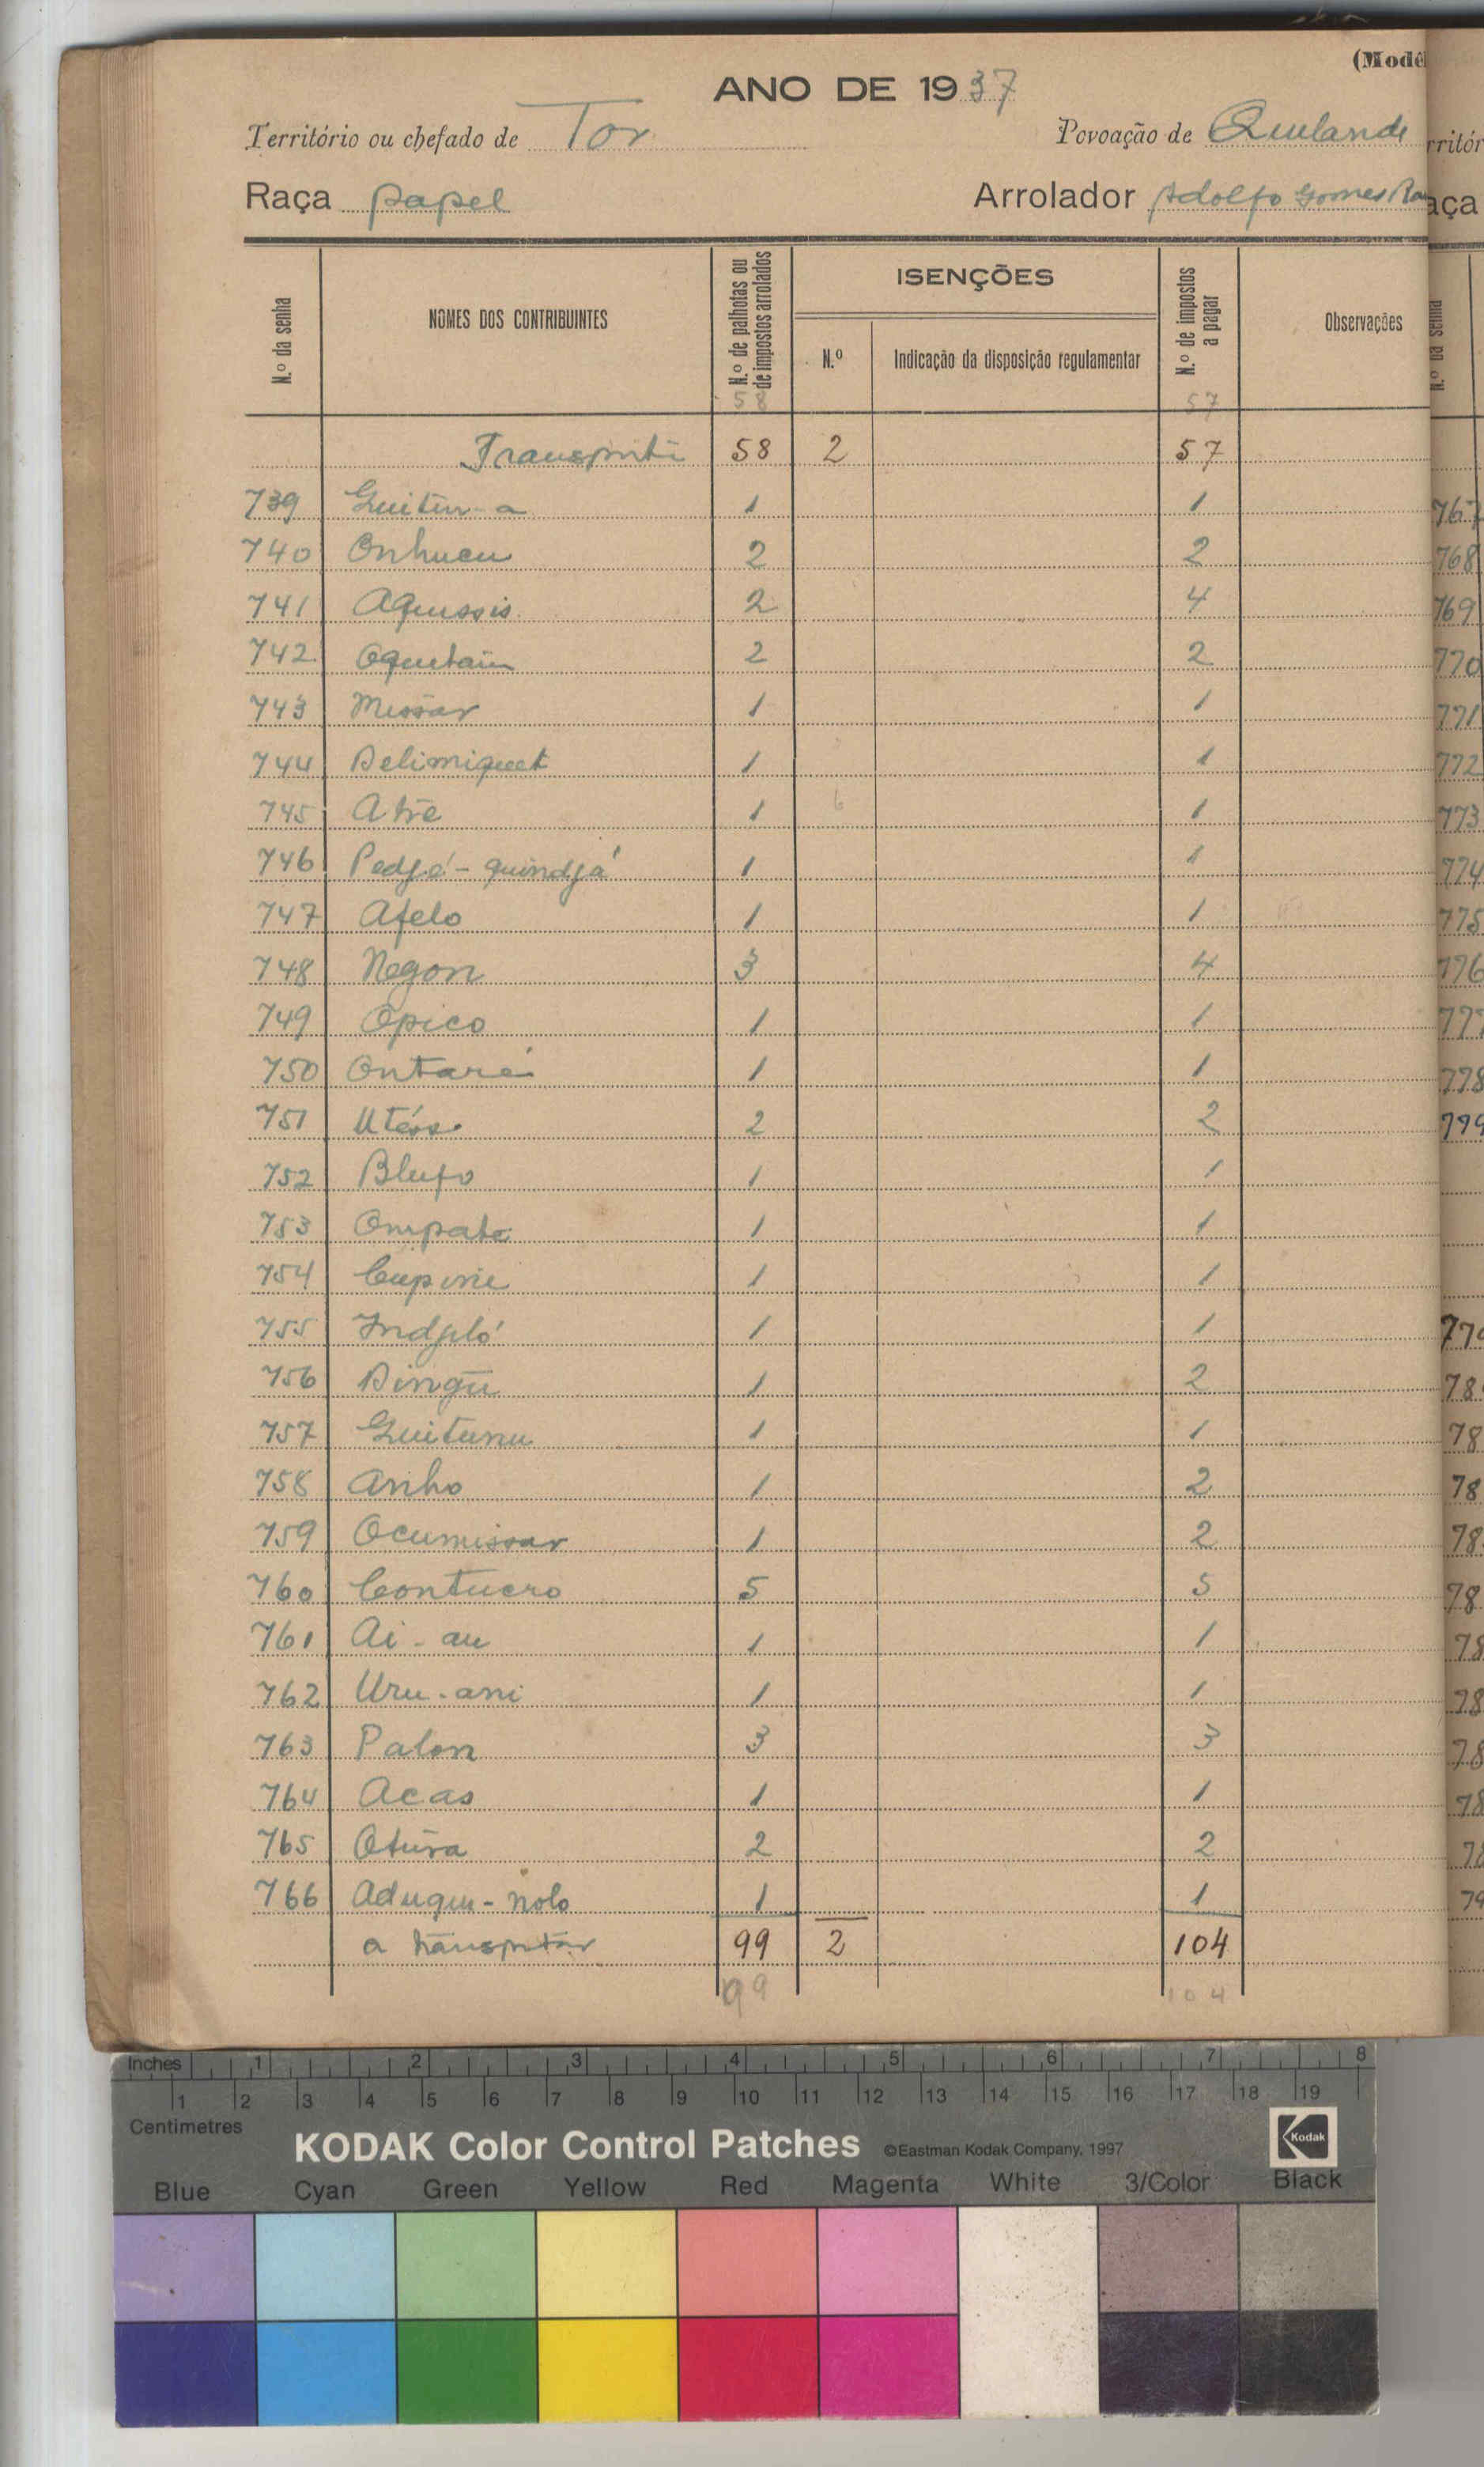 (Modê
ANO DE 1937
Território ou chefado de Tor
Povoação de Quilande
Raça papel
Arrolador Adolfo Gomes Ra
N.º da senha
NOMES DOS CONTRIBUINTES
N.º de palhotas ou de impostos arrolados
ISENÇÕES
N.º
Indicação da disposição regulamentar
N.º de impostos a pagar
Observações
58 57
Transporte 58 2 57
739 Guitin-a 1 1
740 Onhucu 2 2
741 Aqussis 2 4
742 Oquitain 2 2
743 Missar 1 1
744 Belimiquet 1 1
745 Atre 1 6 1
746 Pedjé-quindjá 1 1
747 Afelo 1 1
748 Negon 3 4
749 Opico 1 1
750 Ontaré 1 1
751 2 2
752 Blufo 1 1
753 Ompate 1 1
754 Cupinie 1 1
755 Indjló 1 1
756 Bingu 1 2
757 Guitunu 1 1
758 Anho 1 2
759 Ocumissar 1 2
760 Contucro 5 5
761 Ai-au 1 1
762 Uru-ani 1 1
763 Palon 3 3
764 Acas 1 1
765 Otura 2 2
766 Aduqui-nolo 1 1
a transportar 99 2 104
99 104
rritór
aça
N.º da senha
767
768
769
770
771
772
773
774
775
776
777
778
799
Inches 1 2 3 4 5 6 7 8
1 2 3 4 5 6 7 8 9 10 11 12 13 14 15 16 17 18 19
Centimetres
KODAK Color Control Patches ©Eastman Kodak Company, 1997 Kodak
Blue Cyan Green Yellow Red Magenta White 3/Color Black